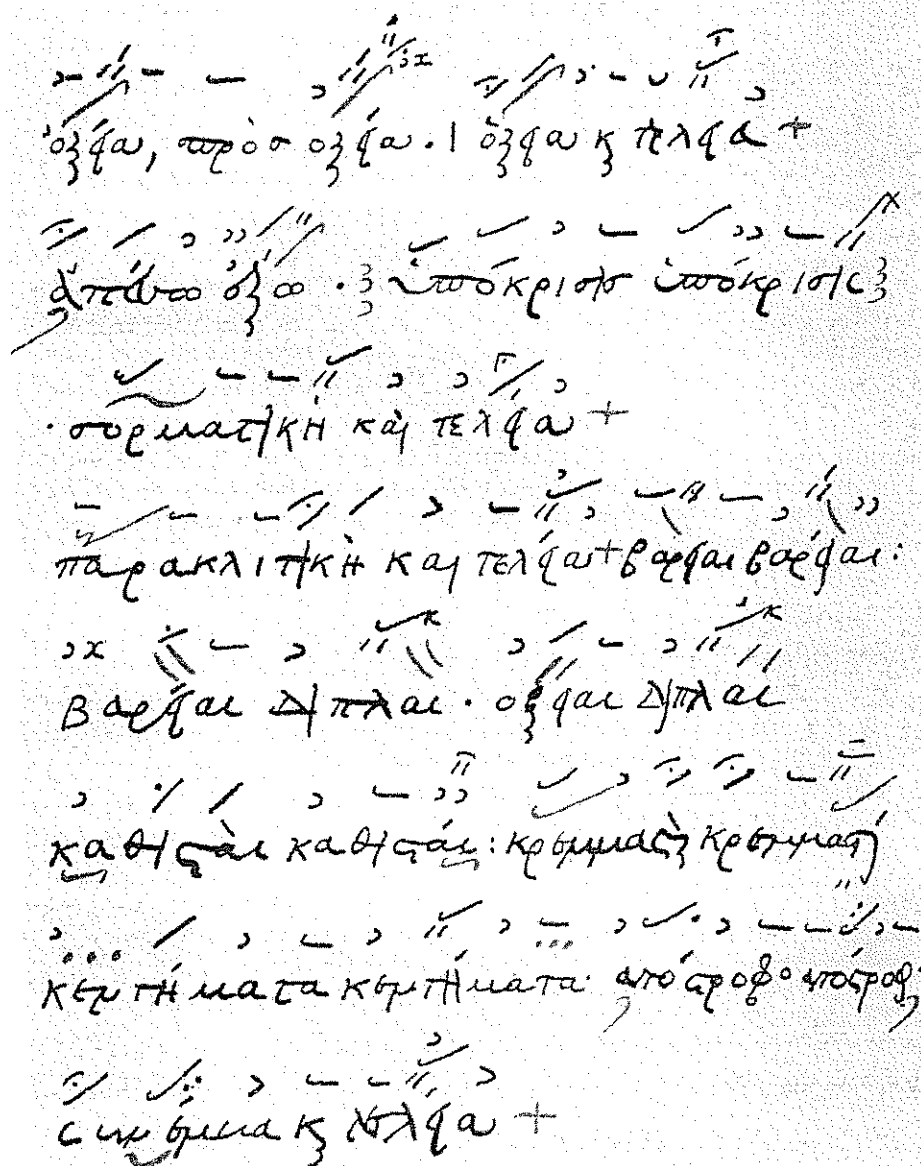 ὀξεία, πρὸσ ὀξεία · ὀξεία ϗ τελεία +
ἀπέσω ὄξω · ὑπόκρισισ ὑπόκρισις
· συρματικὴ καὶ τελεία +
παρακλιτικὴ καὶ τελεία + βαρείαι βαρείαι :
βαρείαι διπλαί · ὀξείαι διπλαί
καθισταὶ καθισταί : κρεμμαστὴ κρεμμαστή
κεντήματα κεντήματα · ἀπόστροφο ἀπόστροφ
ϗ τελεία +